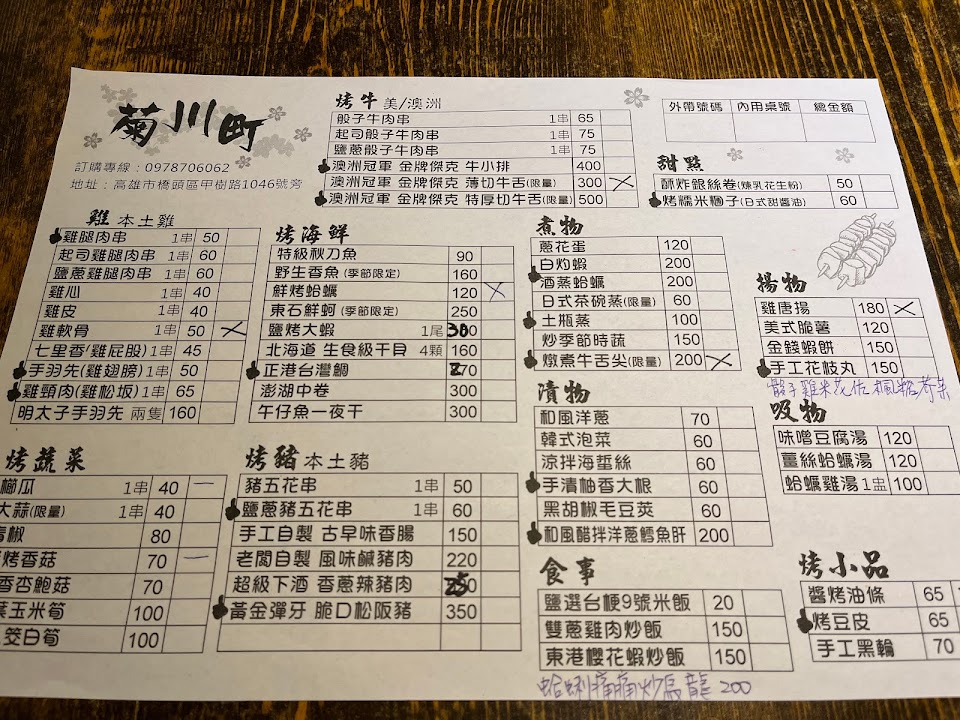 菊川町
訂購專線：0978706062
地址：高雄市橋頭區甲樹路1046號旁
烤牛 美/澳洲
骰子牛肉串 1串 65
起司骰子牛肉串 1串 75
鹽蔥骰子牛肉串 1串 75
澳洲冠軍 金牌傑克 牛小排 400
澳洲冠軍 金牌傑克 薄切牛舌(限量) 300
澳洲冠軍 金牌傑克 特厚切牛舌(限量) 500
外帶號碼 內用桌號 總金額
甜點
酥炸銀絲卷(煉乳花生粉) 50
烤糯米糰子(日式甜醬油) 60
雞 本土雞
雞腿肉串 1串 50
起司雞腿肉串 1串 60
鹽蔥雞腿肉串 1串 60
雞心 1串 40
雞皮 1串 40
雞軟骨 1串 50
七里香(雞屁股) 1串 45
手羽先(雞翅膀) 1串 50
雞頸肉(雞松坂) 1串 65
明太子手羽先 兩隻 160
烤海鮮
特級秋刀魚 90
野生香魚(季節限定) 160
鮮烤蛤蠣 120
東石鮮蚵(季節限定) 250
鹽烤大蝦 1尾
北海道 生食級干貝 4顆 160
正港台灣鯛
澎湖中卷 300
午仔魚一夜干 300
煮物
蔥花蛋 120
白灼蝦 200
酒蒸蛤蠣 200
日式茶碗蒸(限量) 60
土瓶蒸 100
炒季節時蔬 150
燉煮牛舌尖(限量) 200
揚物
雞唐揚 180
美式脆薯 120
金錢蝦餅 150
手工花枝丸 150
骰子雞米花佐楓糖芥末
漬物
和風洋蔥 70
韓式泡菜 60
涼拌海蜇絲 60
手漬柚香大根 60
黑胡椒毛豆莢 60
和風醋拌洋蔥鱈魚肝 200
吸物
味噌豆腐湯 120
薑絲蛤蠣湯 120
蛤蠣雞湯 1盅 100
烤蔬菜
櫛瓜 1串 40
大蒜(限量) 1串 40
青椒 80
烤香菇 70
香杏鮑菇 70
玉米筍 100
筊白筍 100
烤豬 本土豬
豬五花串 1串 50
鹽蔥豬五花串 1串 60
手工自製 古早味香腸 150
老闆自製 風味鹹豬肉 220
超級下酒 香蔥辣豬肉
黃金彈牙 脆口松阪豬 350
食事
鹽選台梗9號米飯 20
雙蔥雞肉炒飯 150
東港櫻花蝦炒飯 150
蛤蜊痛痛炒烏龍 200
烤小品
醬烤油條 65
烤豆皮 65
手工黑輪 70